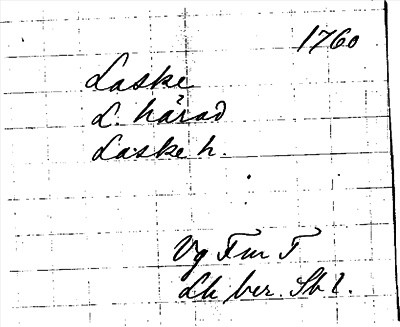 1760
Laske
L. härad
Laske h.
Vg Fm F
Lh ber. Sb 2.